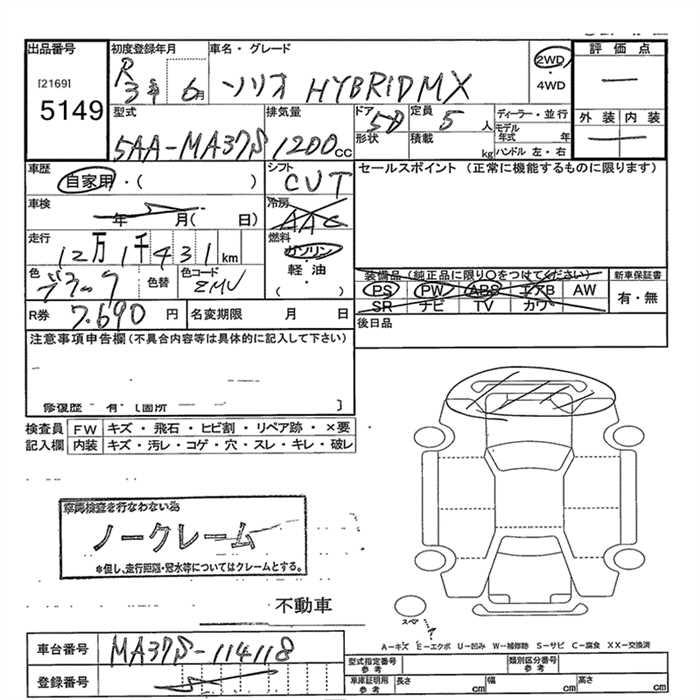 出品番号
[2169]
5149
初度登録年月
R 3年 6月
車名・グレード
ソリオ HYBRID MX
2WD
・
4WD
評価点
型式
5AA-MA37S
排気量
1200 cc
ドア
形状
5D
定員 5 人
積載 kg
ディーラー・並行
モデル
年式 年
ハンドル 左・右
外装 内装
車歴
自家用・( )
シフト
CVT
セールスポイント (正常に機能するものに限ります)
車検
年 月( 日)
冷房
AAC
走行
12万1千431km
燃料
ガソリン
・
軽油
・
( )
色
ブラック
色替
色コード
ZMV
装備品 (純正品に限り○をつけてください)
PS PW ABS エアB AW
SR ナビ TV カワ
新車保証書
有・無
R券 7.690 円
名変期限 月 日
後日品
注意事項申告欄(不具合内容等は具体的に記入して下さい)
修復歴 有〔箇所 〕
検査員
記入欄
FW キズ・飛石・ヒビ割・リペア跡・×要
内装 キズ・汚レ・コゲ・穴・スレ・キレ・破レ
車両検査を行わない為
ノークレーム
*但し、走行距離・冠水等についてはクレームとする。
不動車
スペア
?
A-キズ E-エクボ U-凹み W-補修跡 S-サビ C-腐食 XX-交換済
車台番号 MA37S-114118
登録番号
型式指定番号
参考
類別区分番号
参考
車庫証明用
参考
長さ cm 幅 cm 高さ cm